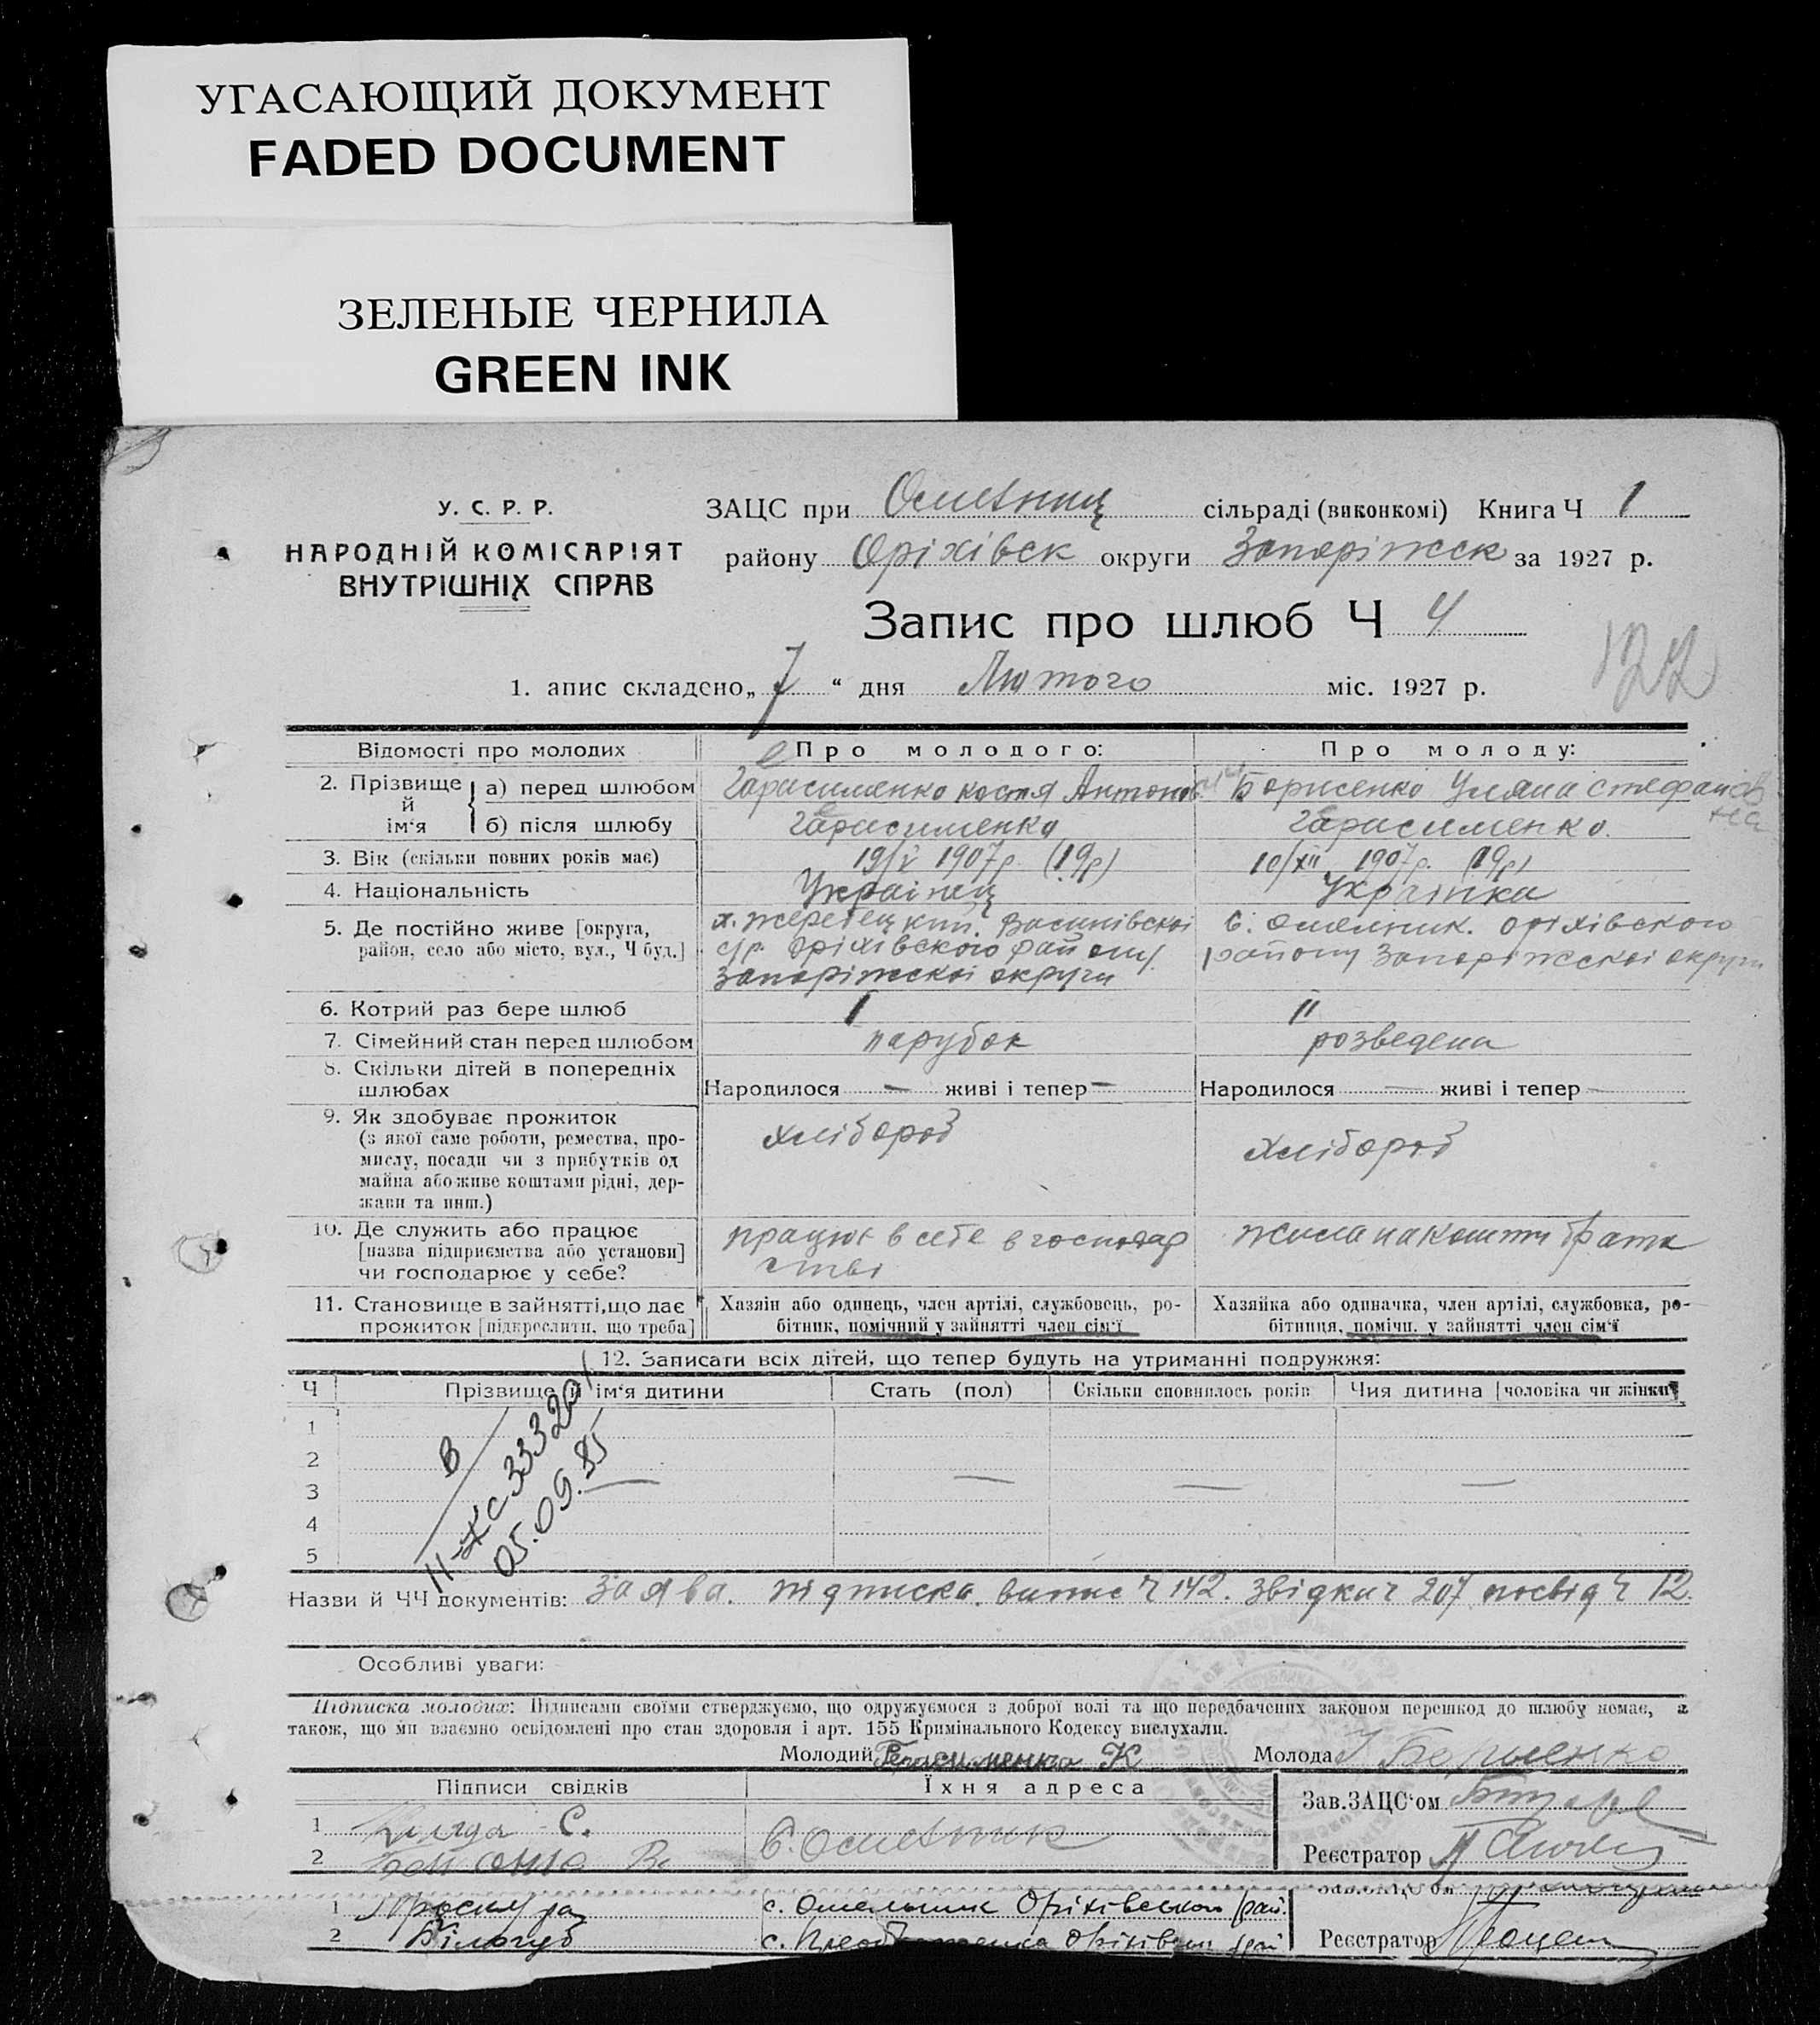 УГАСАЮЩИЙ ДОКУМЕНТ
FADED DOCUMENT
ЗЕЛЕНЫЕ ЧЕРНИЛА
GREEN INK
У. С. Р. Р.
НАРОДНІЙ КОМІСАРІЯТ
ВНУТРІШНІХ СПРАВ
ЗАЦС при сільраді (виконкомі) Книга Ч 1
району Оріхівск округи Запоріжск за 1927 р.
Запис про шлюб Ч 4
122
1. апис складено „7“ дня Лютого міс. 1927 р.
Відомості про молодих Про молодого: Про молоду:
2. Прізвище й ім‘я
а) перед шлюбом Гарасименко Костя Антонов Борисенко Уляна Стефанів
на
б) після шлюбу Гарасименко Гарасименко.
3. Вік (скільки повних років має) 19/V 1907р. (19р) 10/XII 1907р. (19р)
4. Національність Українец Українка
5. Де постійно живе [округа,
район, село або місто, вул., Ч буд.]
х. Жеребец Васинівскоі
с/р. Оріхівского району
Запоріжскоі округи
с. Омельник. Оріхівского
району Запоріжскоі округи
6. Котрий раз бере шлюб I II
7. Сімейний стан перед шлюбом парубок розведена
8. Скільки дітей в попередніх
шлюбах
Народилося — живі і тепер — Народилося — живі і тепер —
9. Як здобуває прожиток
(з якої саме роботи, ремества, про-
мислу, посади чи з прибутків од
майна або живе коштами рідні, дер-
жави та инш.)
хлібороб хлібороб
10. Де служить або працює
[назва підприємства або установи]
чи господарює у себе?
працює в себе в господар
стві
жила на кошти брата
11. Становище в зайнятті, що дає
прожиток [підкреслити, що треба]
Хазяін або одинець, член артілі, службовець, ро-
бітник, помічний у зайнятті член сім‘ї
Хазяйка або одиначка, член артілі, службовка, ро-
бітниця, помічн. у зайнятті член сім‘ї
12. Записати всіх дітей, що тепер будуть на утриманні подружжя:
Ч Прізвище й ім‘я дитини Стать (пол) Скільки сповнилось років Чия дитина [чоловіка чи жінки]
1
2
3
4
5
В
II-ЖС 333260
05.09.85
Назви й ЧЧ документів: Заява. підписка. випис Ч 142. звідка Ч 207 посвід Ч 12.
Особливі уваги:
Підписка молодих: Підписами своїми стверджуємо, що одружуємося з доброї волі та що передбачених законом перешкод до шлюбу немає, а
також, що ми взаємно освідомлені про стан здоровля і арт. 155 Кримінального Кодексу вислухали.
Молодий Герасименко К Молода У Борисенко
Підписи свідків Їхня адреса
Зав. ЗАЦС‘ом
1 С.
2
С. Омельник
Реєстратор
1 с. Омельник Оріхівського рай.
2 Білогуб с.
Реєстратор